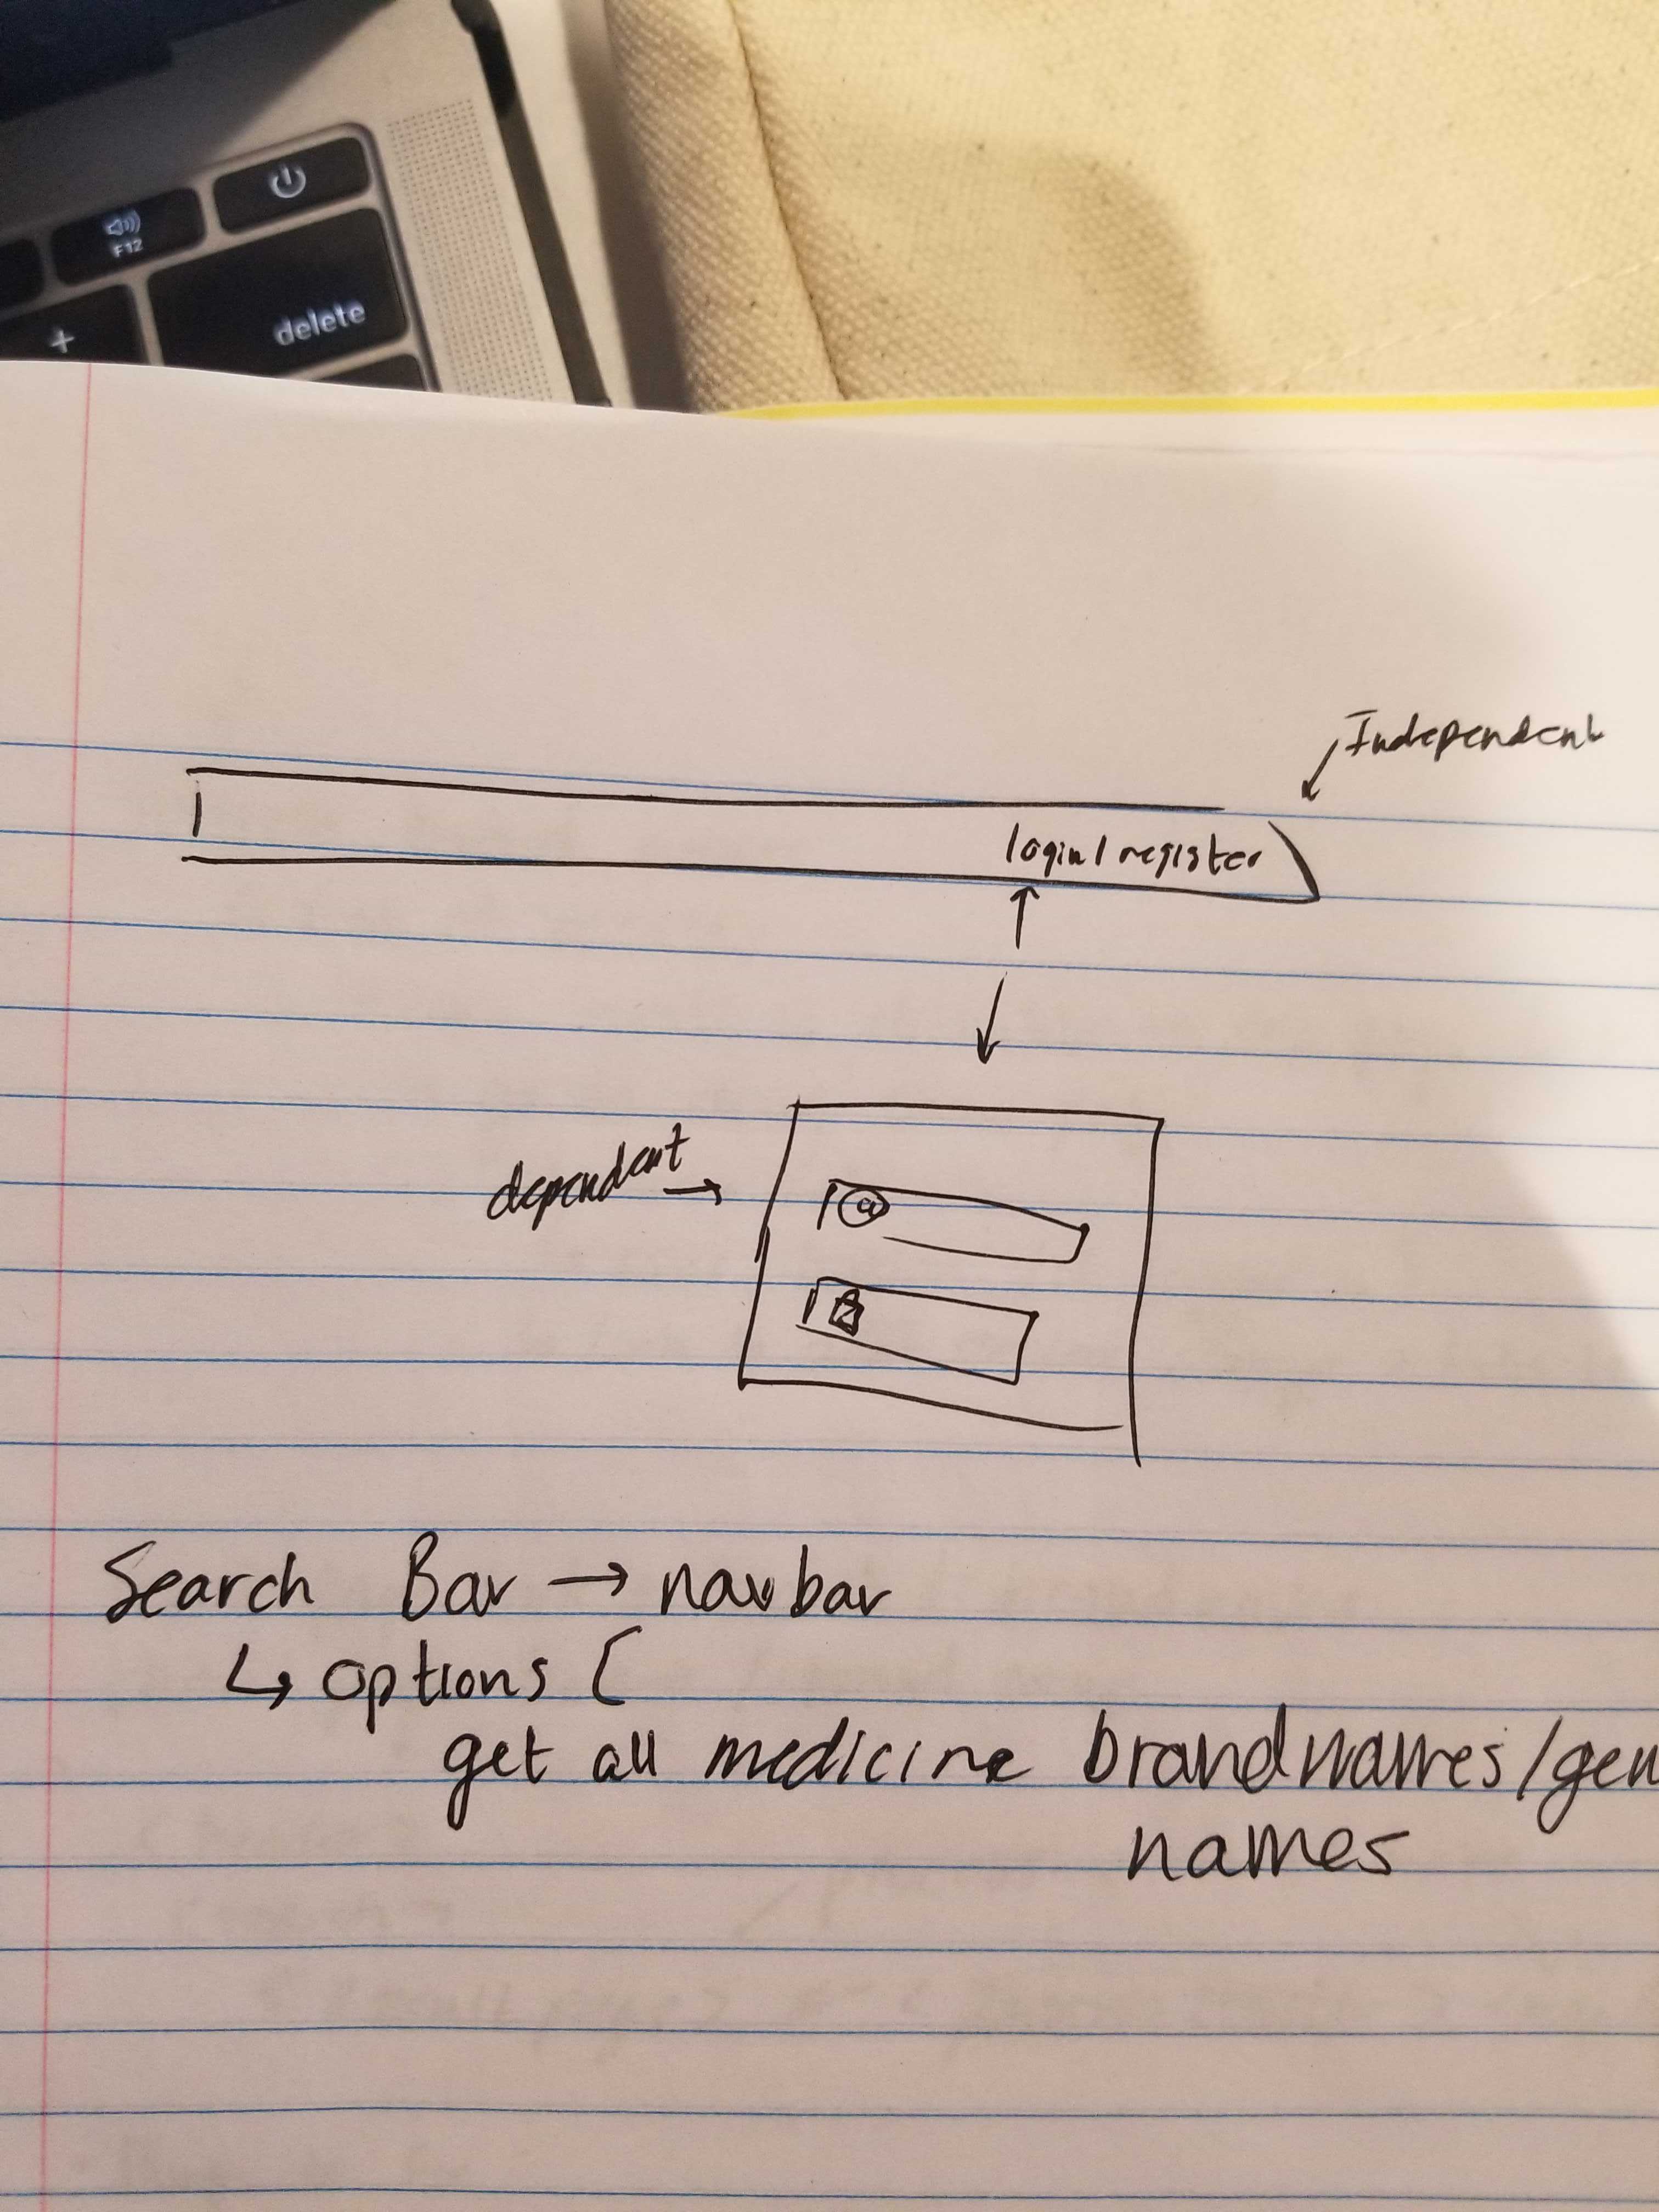 F12
delete
+
Independent
login/register
dependent →
@
Search Bar → navbar
↳ options [
get all medicine brandnames/gen
names